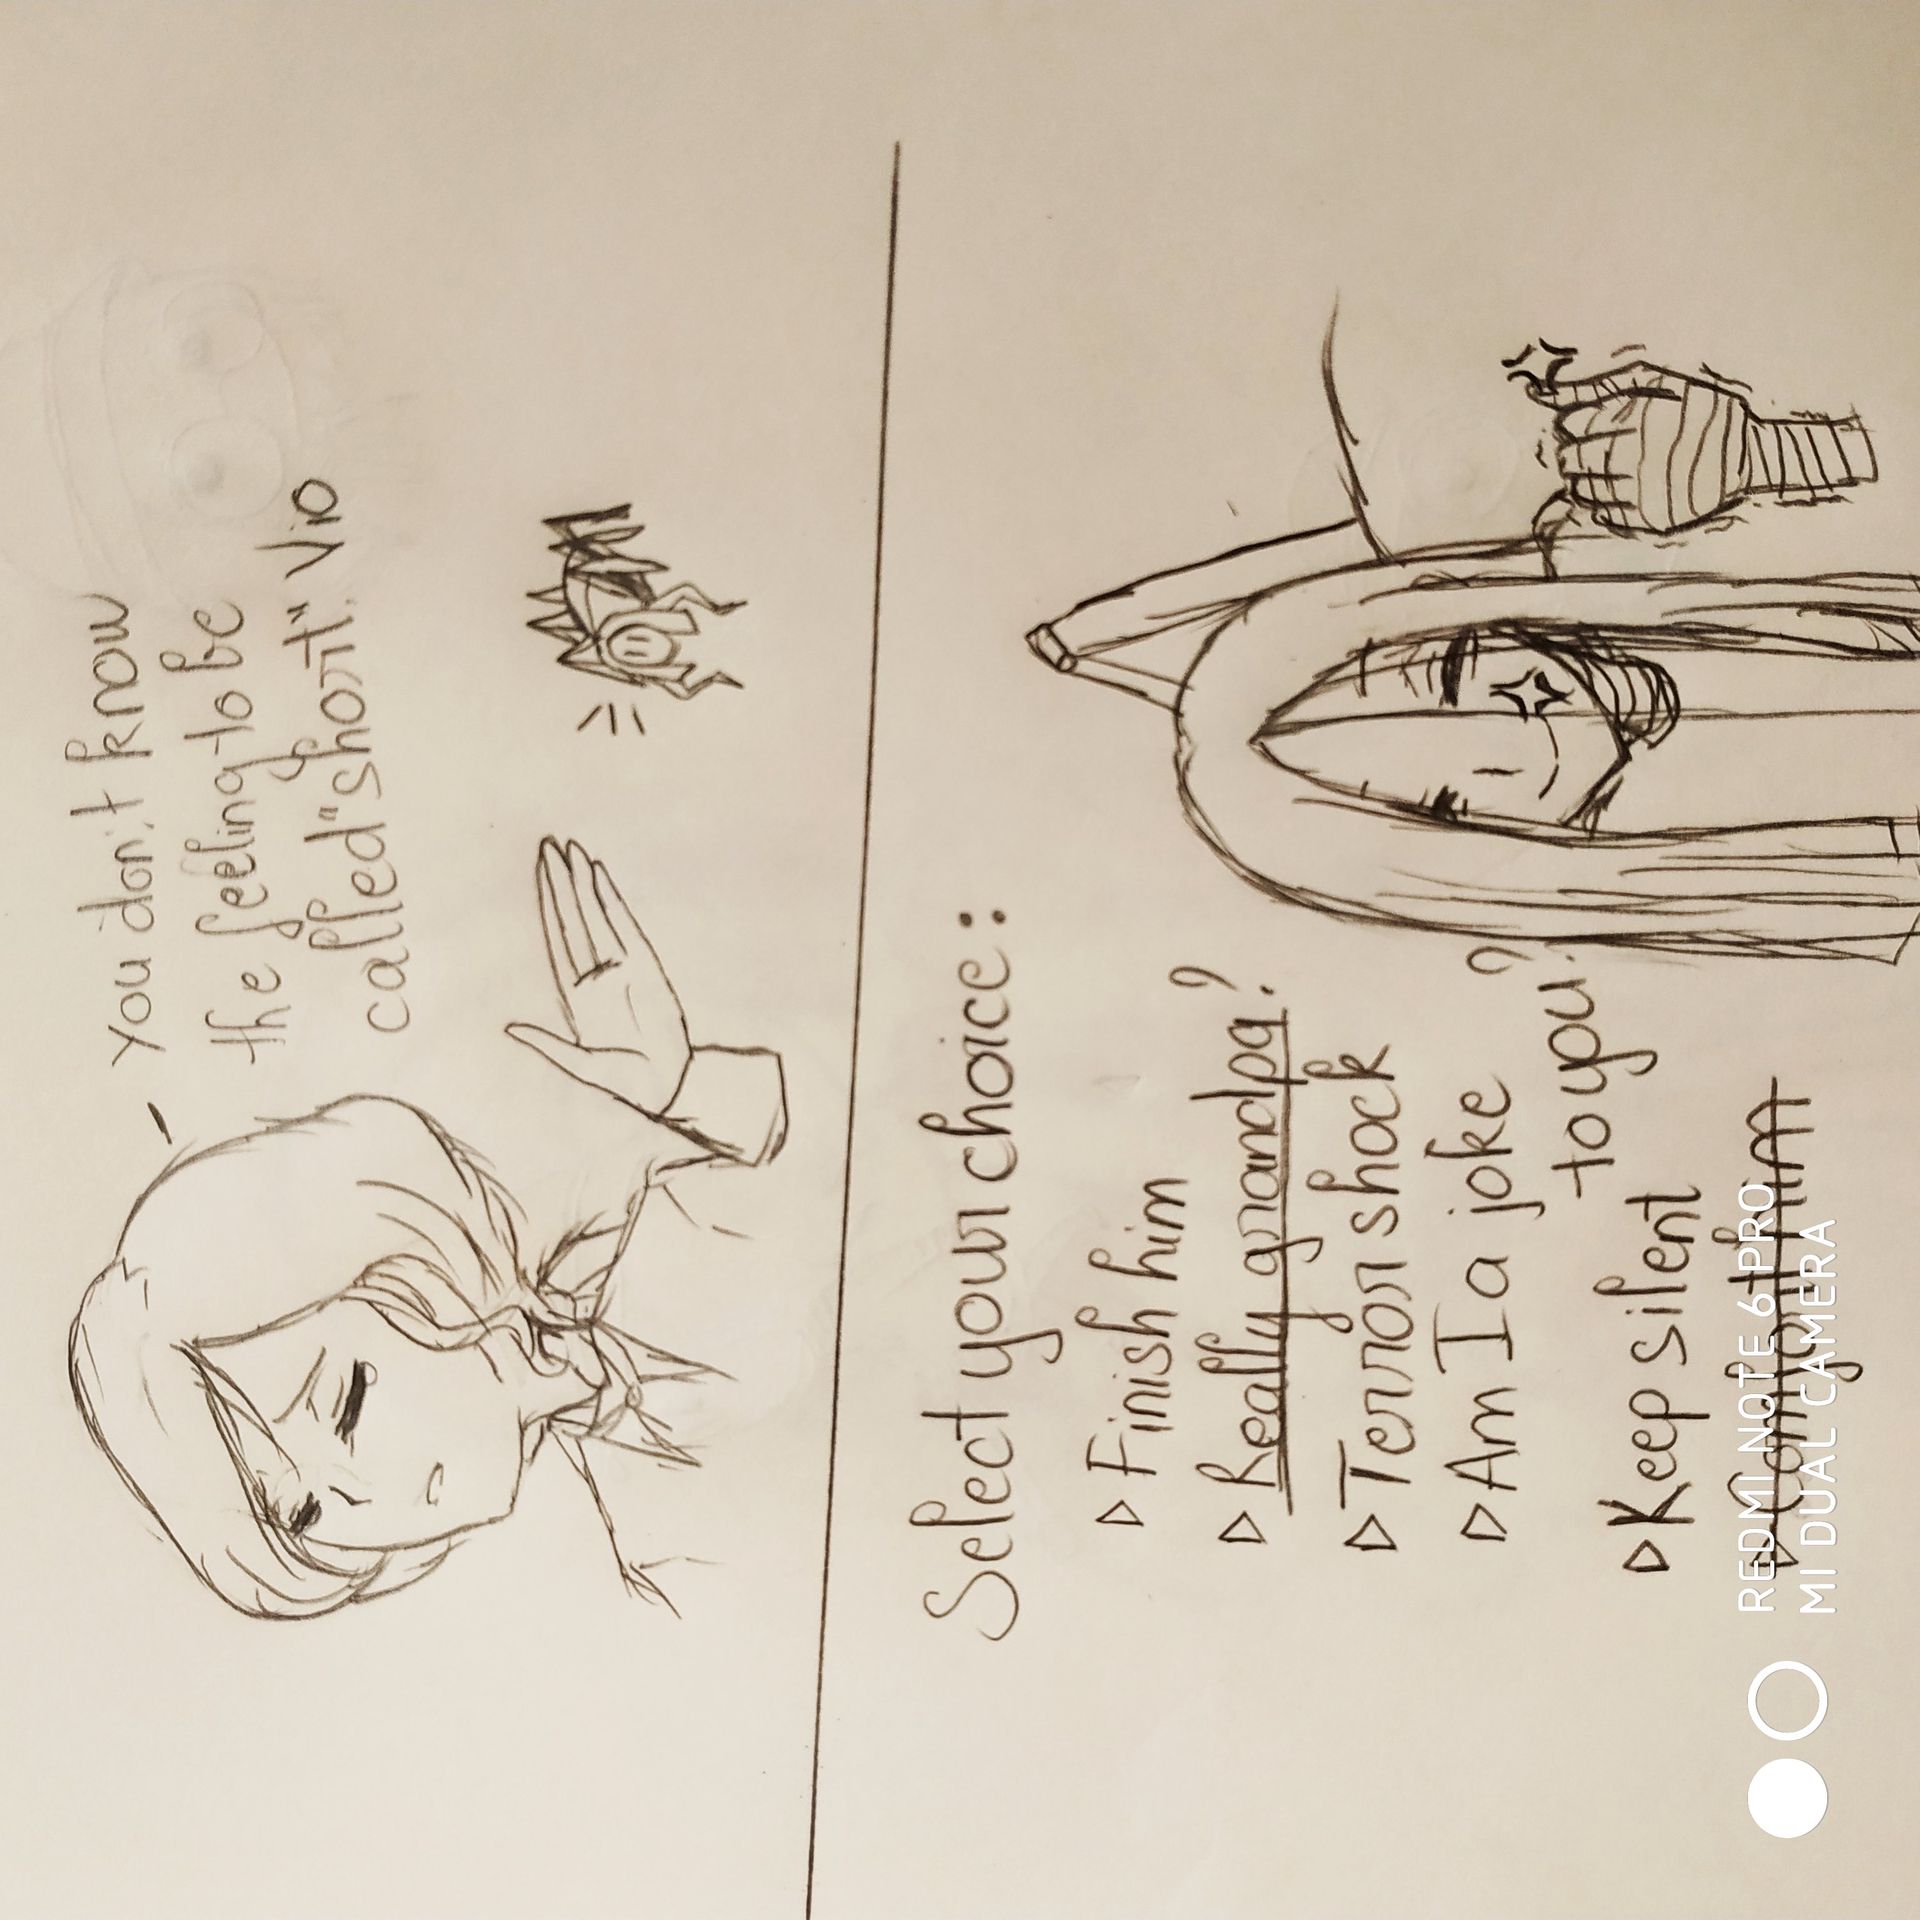 You don't know
the feeling to be
called "short". Vio
Select your choice:
Finish him
Really grandpa?
Terror shock
Am I a joke
to you?
Keep silent
REDMI NOTE 6 PRO
MI DUAL CAMERA